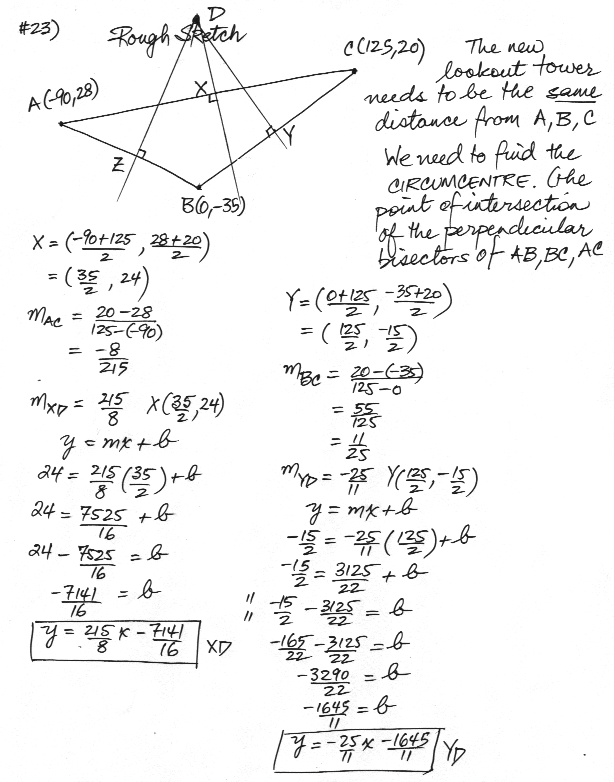 #23)
Rough Sketch
D
C(125,20)
A(-90,28)
X
Y
Z
B(0,-35)
The new
lookout tower
needs to be the same
distance from A,B,C
We need to find the
CIRCUMCENTRE. (the
point of intersection
of the perpendicular
bisectors of AB,BC,AC
X = (-90+125/2, 28+20/2)
= (35/2, 24)
mAC = 20-28/125-(-90)
= -8/215
mXD = 215/8 X(35/2,24)
y = mx+b
24 = 215/8 (35/2)+b
24 = 7525/16 + b
24 - 7525/16 = b
-7141/16 = b
y = 215/8 x - 7141/16 XD
Y = (0+125/2, -35+20/2)
= (125/2, -15/2)
mBC = 20-(-35)/125-0
= 55/125
= 11/25
mYD = -25/11 Y(125/2, -15/2)
y = mx+b
-15/2 = -25/11 (125/2)+b
-15/2 = 3125/22 + b
" -15/2 - 3125/22 = b
"
-165/22 - 3125/22 = b
-3290/22 = b
-1645/11 = b
y = -25/11 x -1645/11 YD